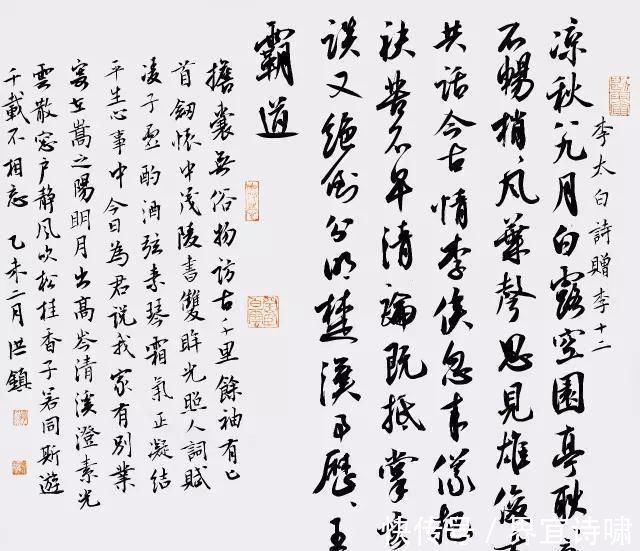 李太白詩贈李十二
凉秋八九月白露空園亭耿
不暢梢、風葉聲思見雄俊
共話今古情李侯忽来儀把
袂苦不早清論既抵掌玄
談又絕倒分明楚漢事歷、王
霸道
擔囊無俗物訪古千里餘袖有匕
首劔懷中茂陵書雙眸光照人詞賦
凌子虛酌酒弦素琴霜氣正凝結
平生心事中今日為君說我家有別業
寄在嵩之陽明月出高岑清溪澄素光
雲散窓户静風吹松桂香子若同斯遊
千載不相忘 乙未二月 洪鎮
快传号 / 界宜诗啸